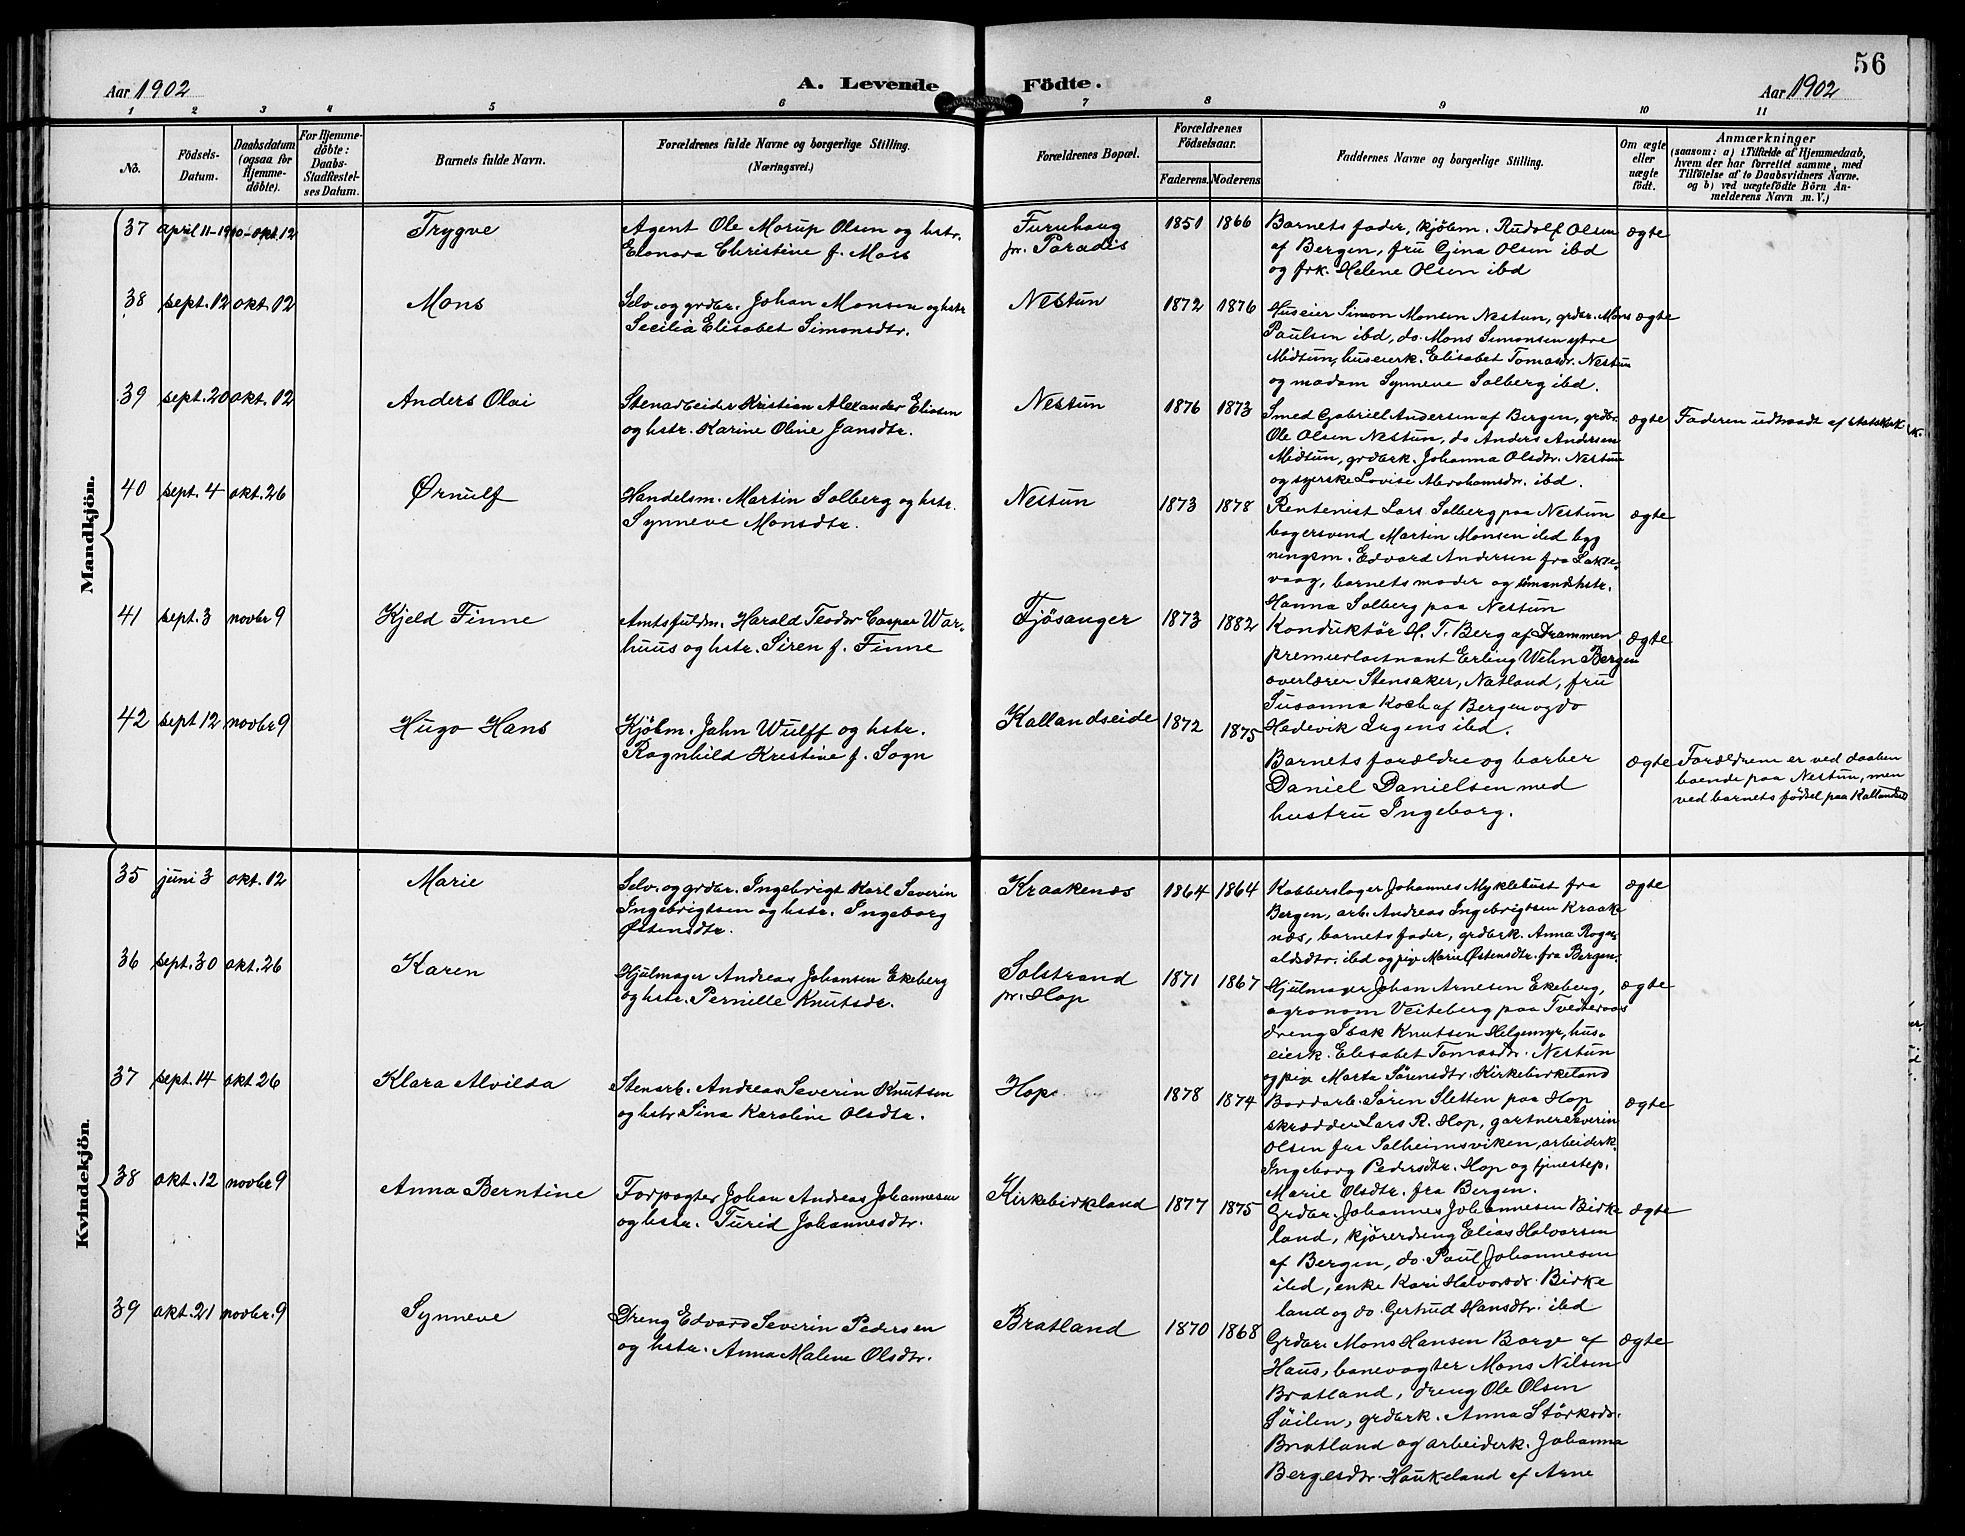 56
Aar 1902
A. Levende Födte.
Aar 1902
1 2 3 4 5 6 7 8 9 10 11
No.
Födsels-
Datum.
Daabsdatum
(ogsaa for
Hjemme-
döbte).
For Hjemme-
döbte:
Daabs-
Stadfæstel-
ses Datum.
Barnets fulde Navn.
Forældrenes fulde Navne og borgerlige Stilling.
(Næringsvei.)
Forældrenes Bopæl.
Forældrenes
Födselsaar.
Faderens. Moderens
Faddernes Navne og borgerlige Stilling.
Om ægte
eller
uægte
födt.
Anmærkninger
(saasom: a) i Tilfælde af Hjemmedaab,
hvem der har forrettet samme, med
Tilföielse af to Daabsvidners Navne.
og b) ved uægtefödte Börn An-
melderens Navn m.V.)
Mandkjön.
37 april 11-1900 okt. 12 Trygve
Agent Ole Morup Olsen og hstr.
Elonora Christine f. Moss
Furuhaug
pr. Paradis
1851 1866
Barnets fader, kjøbm. Rudolf Olsen
af Bergen, fru Gina Olsen ibd
og frk. Helene Olsen ibd
ægte
38 sept. 12 okt. 12 Mons
Selv. og grdbr. Johan Monsen og hstr
Secilia Elisabet Simonsdtr.
Nestun
1872 1876
Huseier Simon Monsen Nestun, grdbr. Mons
Paulsen ibd, do. Mons Simonsen ytre
Midtun, huseierk. Elisabet Tomasdr. Nestun
og madam Synneve Solberg ibd.
ægte
39 sept. 20 okt. 12 Anders Olai
Stenarbeider Kristian Alexander Eliasen
og hstr. Karine Oline Jansdtr.
Nestun
1876 1873
Smed Gabriel Andersen af Bergen, grdbr.
Ole Olsen Nestun, do Anders Andersen
Midtun, grdbrk. Johanna Olsdtr. Nestun
og syerske Lovise Abrahamsdr. ibd.
ægte
Faderen udtraadt af statskirk
40 sept. 4 okt. 26 Ørnulf
Handelsm. Martin Solberg og hstr.
Synneve Monsdtr.
Nestun
1873 1878
Rentenist Lars Solberg paa Nestun
bagersvend Martin Monsen ibd byg
ningsm. Edvard Andersen fra Lakse-
vaag, barnets moder og smandshstr.
Hanna Solberg paa Nestun
ægte
41 sept. 3 novbr 9 Kjeld Finne
Amtsfuldm. Harald Teodor Caspar War-
huus og hstr. Siren f. Finne
Fjøsanger
1873 1882
Konduktør H. T. Berg af Drammen,
premierløitnant Erling Wehn Bergen
overlærer Stensaker, Natland, fru
Susanna Koch af Bergen og do
Hedevik Irgens ibd.
ægte
42 sept 12 novbr 9 Hugo Hans
Kjøbm. John Wulff og hstr.
Ragnhild Kristine f. Sogn
Kallandseide
1872 1875
Barnets forældre og barber
Daniel Danielsen med
hustru Ingeborg.
ægte
Forældrene er ved daaben
boende paa Nestun, men
ved barnets fødsel paa Kallandseid
Kvindekjön.
35 juni 3 okt. 12 Marie
Selv. og grdbr. Ingebrigt Karl Severin
Ingebrigtsen og hstr. Ingeborg
Østensdtr.
Kraakenæs
1864 1864
Kobberslager Johannes Myklebust fra
Bergen, arb. Andreas Ingebrigtsen Kraake
næs, barnets fader, grdbrk. Anna Rogn-
aldsdtr. ibd og pige Marie Østensdtr. fra Bergen.
ægte
36 sept. 30 okt. 26 Karen
Hjulmager Andreas Johansen Ekeberg
og hstr. Pernille Knutsdr.
Solstrand
pr. Hop
1871 1867
Hjulmager Johan Arnesen Ekeberg,
agronom Veiteberg paa Tvedteraas
dreng Isak Knutsen Helgemyr, hus-
eierk. Elisabet Tomasdtr. Nestun
og pige Marta Sørensdtr. Kirkebirkeland
ægte
37 sept. 14 okt 26 Klara Alvilda
Stenarb. Andreas Severin Knutsen
og hstr. Sina Karoline Olsdtr.
Hop
1878 1874
Bordarb. Søren Sletten paa Hop
skrædder Lars R. Hop, gartner Severin
Olsen fra Solheimsviken, arbeiderk.
Ingeborg Pedersdtr. Hop og tjenestep.
Marie Olsdtr. fra Bergen.
ægte
38 okt. 12 novbr 9 Anna Berntine
Forpagter Johan Andreas Johannesen
og hstr. Turid Johannesdtr.
Kirkebirkeland
1877 1875
Grdbr. Johannes Johannesen Birke
land, kjørerdreng Elias Halvorsen
af Bergen, do. Paul Johannesen
ibd, enke Kari Halvorsdr. Birke
land og do. Gertrud Hansdtr. ibd
ægte
39 okt. 21 novbr. 9 Synneve
Dreng Edvard Severin Pedersen
og hstr. Anna Malene Olsdtr.
Bratland
1870 1868
Grdbr. Mons Hansen Borge af
Haus, banevogter Mons Nilsen
Bratland, dreng Ole Olsen
Søilen, grdbrk. Anna Størksdr.
Bratland og arbeiderk. Johanna
Bergesdtr. Haukeland af Arne
ægte